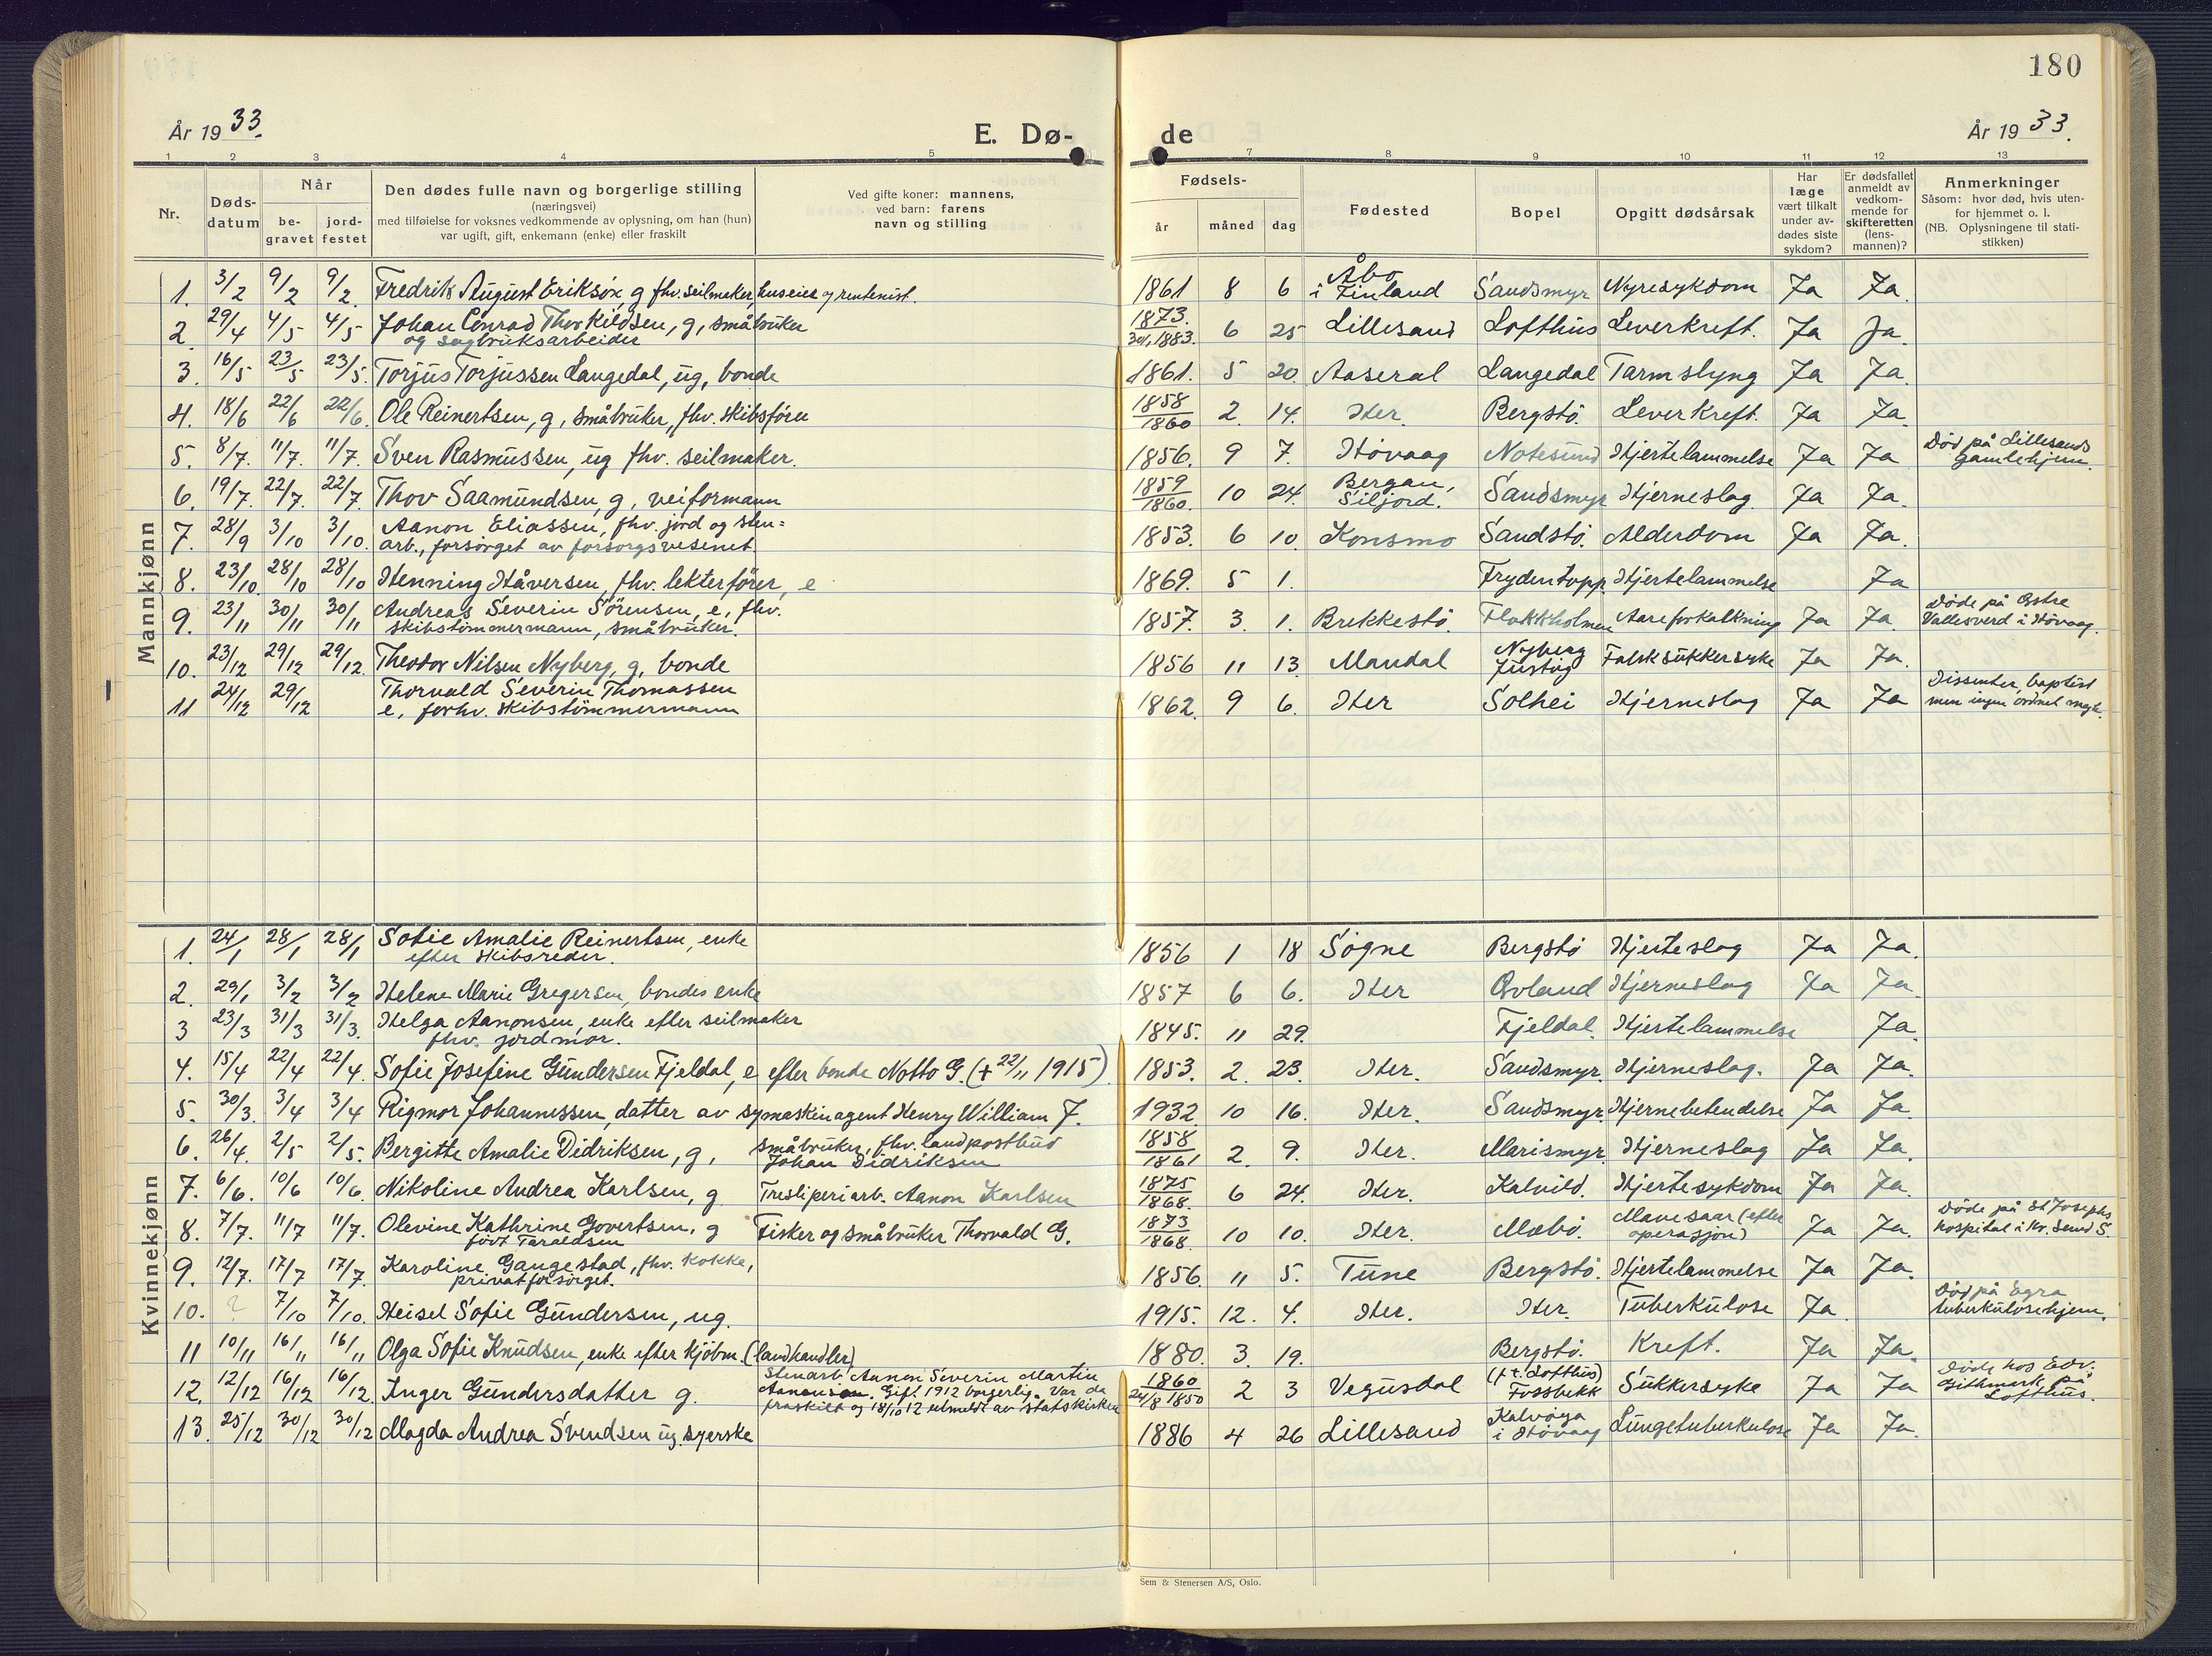 180
År 1933.
E. Dø-
de
År 1933.
1 2 3 4 5 7 8 9 10 11 12 13
Nr.
Døds-
datum
Når
be-
gravet
jord-
festet
Den dødes fulle navn og borgerlige stilling
(næringsvei)
med tilføielse for voksnes vedkommende av oplysning, om han (hun)
var ugift, gift, enkemann (enke) eller fraskilt
Ved gifte koner: mannens,
ved barn: farens
navn og stilling
Fødsels-
år måned dag
Fødested
Bopel
Opgitt dødsårsak
Har
læge
vært tilkalt
under av-
dødes siste
sykdom?
Er dødsfallet
anmeldt av
vedkom-
mende for
skifteretten
(lens-
mannen)?
Anmerkninger
Såsom: hvor død, hvis uten-
for hjemmet o. l.
(NB. Oplysningene til stati-
stikken)
Mannkjønn
1. 3/2 9/2 9/2. Fredrik August Eriksøn, g fhv. seilmaker, huseier og rentenist. 1861 8 6 Åbo i Finland Sandsmyr Nyresykdom Ja Ja.
2. 29/4 4/5 4/5 Johan Conrad Thorkildsen, g, småbruker
og sagbruksarbeider 1873. 30/1 1883. 6 25 Lillesand Lofthus Leverkreft. Ja Ja.
3. 16/5 23/5 23/5. Torjus Torjussen Langedal, ug, bonde 1861. 5 20. Aaseral Langedal Tarmslyng Ja Ja.
4. 18/6 22/6 22/6. Ole Reinertsen, g, småbruker, fhv. skibsfører 1858/1860 2. 14. Her. Bergstø. Leverkreft. Ja Ja.
5. 8/7. 11/7. 11/7. Sven Rasmussen, ug fhv. seilmaker. 1856. 9 7. Høvaag Notesund Hjertelammelse Ja Ja Død på Lillesands
gamlehjem.
6. 19/7. 22/7. 22/7. Thov Saamundsen, g, veiformann 1859/1860. 10 24. Bergan, Siljord. Sandsmyr Hjerneslag. Ja Ja.
7. 28/9 3/10 3/10. Aanon Eliassen, fhv. jord og sten=
arb., forsørget av forsorgsvesenet. 1853. 6 10. Konsmo Sandstø. Alderdom Ja Ja.
8. 23/10. 28/10 28/10 Henning Håversen, fhv. lekterfører, e 1869. 5 1. Frydentopp. Hjertelammelse Ja
9. 23/11 30/11 30/11 Andreas Severin Sørensen, e, fhv.
skibstømmermann, småbruker. 1857. 3. 1. Brekkestø. Flakkholmen Aareforkalkning Ja Ja. Døde på Østre
Vallesverd i Høvaag.
10. 23/12 29/12 29/12. Theodor Nilsen Nyberg, g, bonde 1856 11 13. Mandal Nyberg Justøy Falsk sukkersyke Ja Ja.
11 24/12 29/12 Thorvald Severin Thomassen
e, forhv. skibstømmermann 1862. 9 6. Her Solhei Hjerneslag Ja Ja Dissenter, baptist
men ingen ordnet
Kvinnekjønn
1. 24/1 28/1 28/1 Sofie Amalie Reinertsen, enke
efter skibsreder. 1856 1 18 Søgne Bergstø Hjerteslag Ja Ja.
2. 29/1 3/2 3/2 Helene Marie Gregersen, bondes enke 1857 6 6. Her Qvland Hjerneslag Ja Ja.
3 23/3 31/3 31/3. Helga Aanonsen, enke efter seilmaker
fhv. jordmor. 1845. 11 29. Fjeldal. Hjertelammelse Ja.
4. 15/4 22/4 22/4. Sofie Josefine Gundersen Fjeldal, e efter bonde Notto G. (+ 22/11 1915). 1853. 2. 23. Her. Sandsmyr. Hjerneslag. Ja Ja.
5. 30/3. 3/4 3/4 Rigmor Johannessen, datter av symaskinagent Henry William J. 1932. 10 16. Her. Sandsmyr. Hjernebetendelse Ja Ja.
6. 26/4. 2/5 2/5. Bergitte Amalie Didriksen, g, småbruker, fhv. landpostbud
Johan Didriksen 1858/1861 2. 9. Her. Marismyr. Hjerneslag Ja Ja.
7. 6/6. 10/6 10/6. Nikoline Andrea Karlsen, g Tresliperiarb. Aanon Karlsen 1875/1868. 6 24. Her. Kalvild. Hjertesykdom Ja Ja.
8. 7/7. 11/7 11/7. Olevine Kathrine Govertsen, g Fisker og småbruker Thorvald G.
født Taraldsen 1873/1868. 10 10. Her. Møbø. Mavesaar (efter
operasjon) Ja Ja. Døde på St Josephs
hospital i Kr. send S.
9. 12/7. 17/7 17/7. Karoline Gangestad, fhv. kokke,
privatforsørget. 1856. 11 5. Tune Bergstø. Hjertelammelse Ja Ja.
10. ? 7/10 7/10. Heisel Sofie Gundersen, ug. 1915. 12. 4. Her. Her. Tuberkulose Ja Død på Egra
tuberkulosehjem.
11 10/11 16/11 16/11 Olga Sofie Knudsen, enke efter kjøbm. (landhandler) 1880. 3. 19. Bergstø. Kreft. Ja Ja.
12. 12/12 16/12 16/12. Inger Gundersdatter g. Stenarb. Aanon Severin Martin
Aanonsen. Gift 1912 borgerlig. Var da
fraskilt og 18/10 12 utmeldt av statskirken 1860 24/8 1850 2 3 Vegusdal (f. t. Lofthus)
Fossbekk Sukkersyke Ja Ja Døde hos Edv.
på
Lofthus.
13. 25/12 30/12 30/12 Magda Andrea Svendsen ug. syerske 1886 4 26 Lillesand Kalvøya
i Høvaag Lungetuberkulose Ja Ja.
Sem & Stenersen A/S, Oslo.